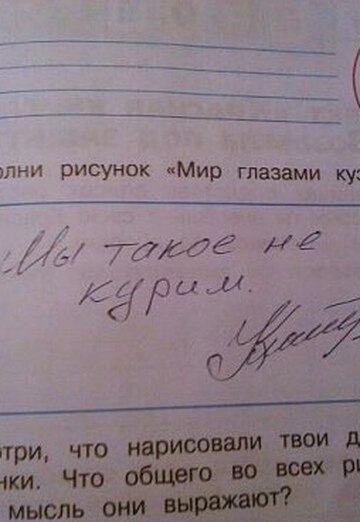 олни рисунок «Мир глазами куз
Мы такое не
курим.
отри, что нарисовали твои д
нки. Что общего во всех ри
мысль они выражают?